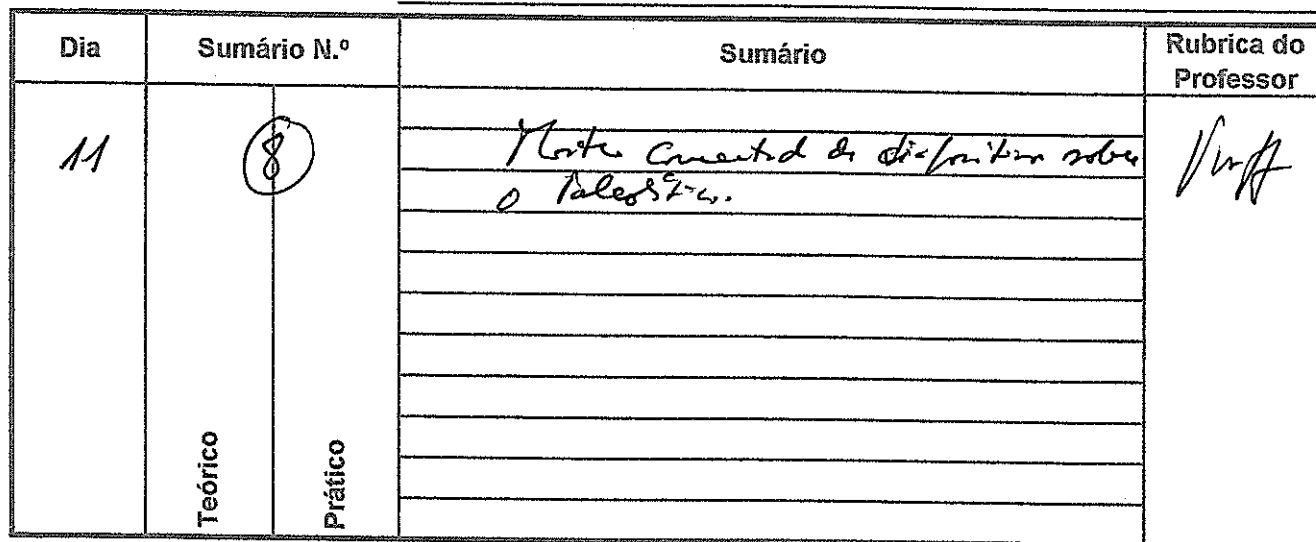 Dia
Sumário N.º
Sumário
Rubrica do
Professor
11
8
comentada de diapositivos sobre
o Paleolítico.
Teórico
Prático